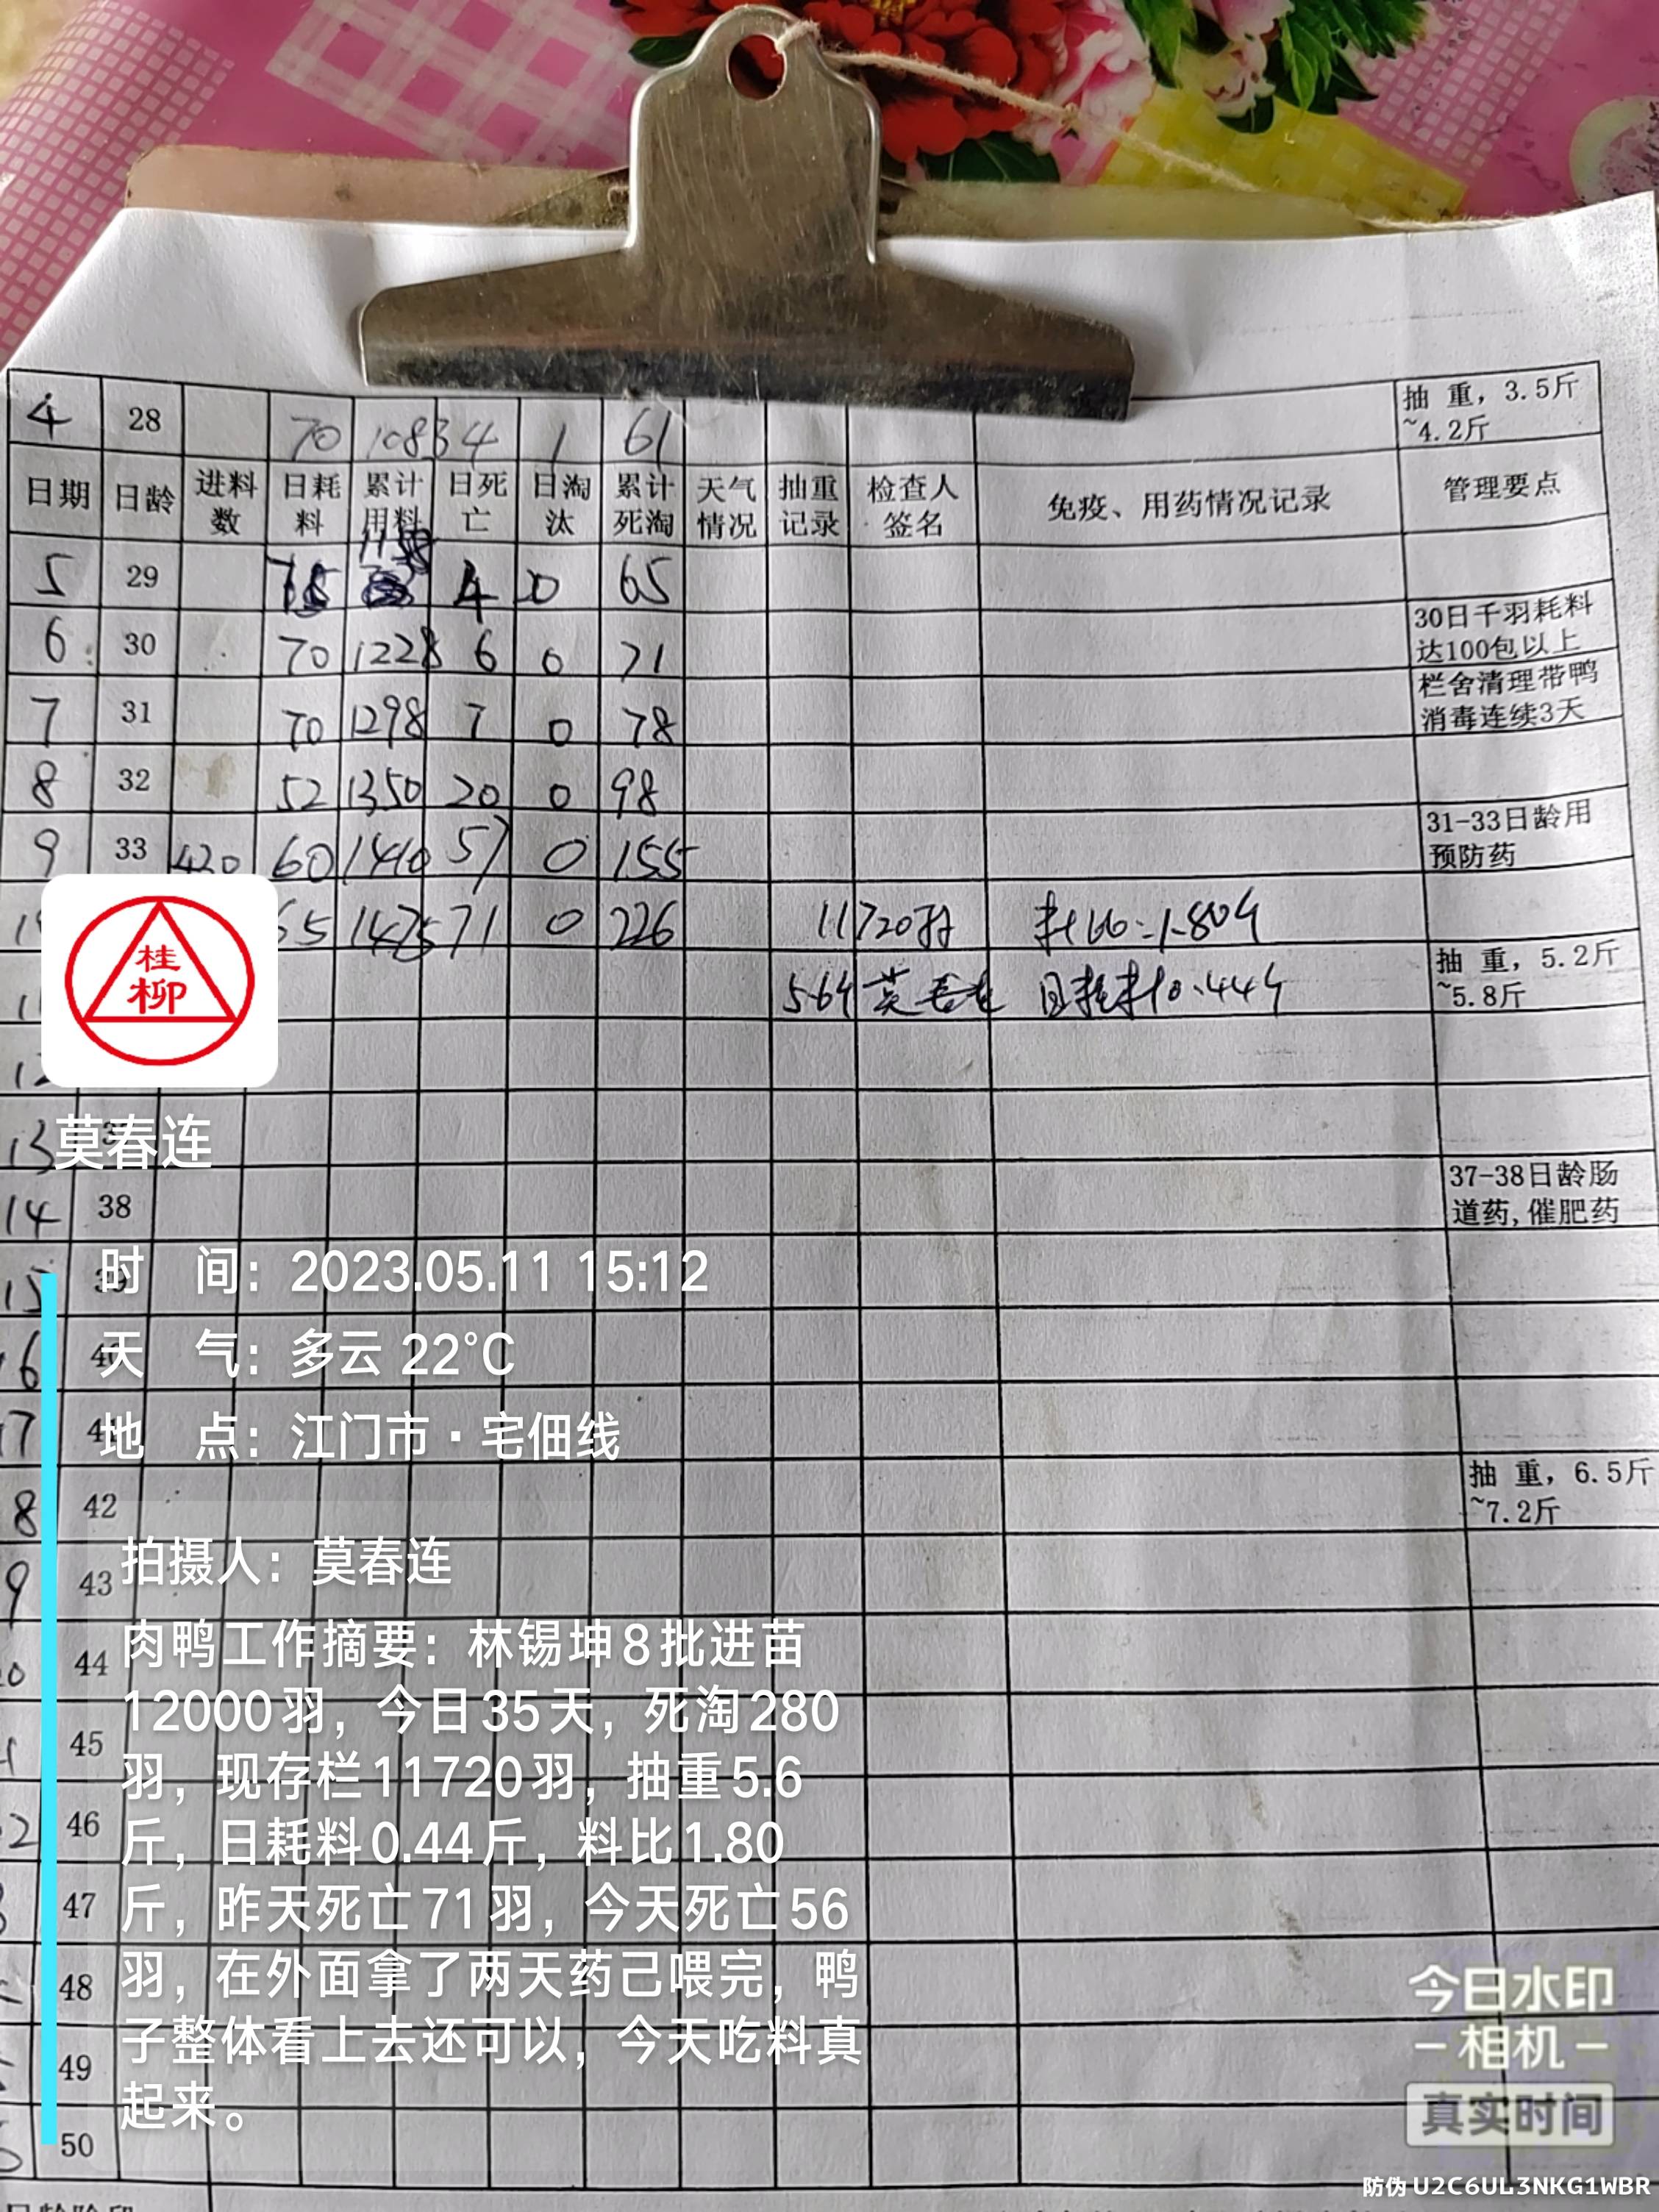 4 28 70 1083 4 1 61 抽 重，3.5斤
~4.2斤
日期 日龄 进料数 日耗料 累计用料 日死亡 日淘汰 累计死淘 天气情况 抽重记录 检查人签名 免疫、用药情况记录 管理要点
5 29 75 1158 4 0 65
6 30 70 1228 6 0 71 30日千羽耗料
达100包以上
7 31 70 1298 7 0 78 栏舍清理带鸭
消毒连续3天
8 32 52 1350 20 0 98
9 33 420 60 1410 57 0 155 31-33日龄用
预防药
65 1475 71 0 226 11720羽 料比:1.80斤
11 5.6斤 莫春连 日耗料0.44斤 抽 重，5.2斤
~5.8斤
12
13
14 38 37-38日龄肠
道药,催肥药
15 39
16 40
17 41
18 42 抽 重，6.5斤
~7.2斤
19 43
44
45
46
47
48
49
50
桂
柳
莫春连
时 间：2023.05.11 15:12
天 气：多云 22°C
地 点：江门市·宅佃线
拍摄人：莫春连
肉鸭工作摘要：林锡坤8批进苗
12000羽，今日35天，死淘280
羽，现存栏11720羽，抽重5.6
斤，日耗料0.44斤，料比1.80
斤，昨天死亡71羽，今天死亡56
羽，在外面拿了两天药己喂完，鸭
子整体看上去还可以，今天吃料真
起来。
今日水印
相机
真实时间
防伪 U2C6UL3NKG1WBR